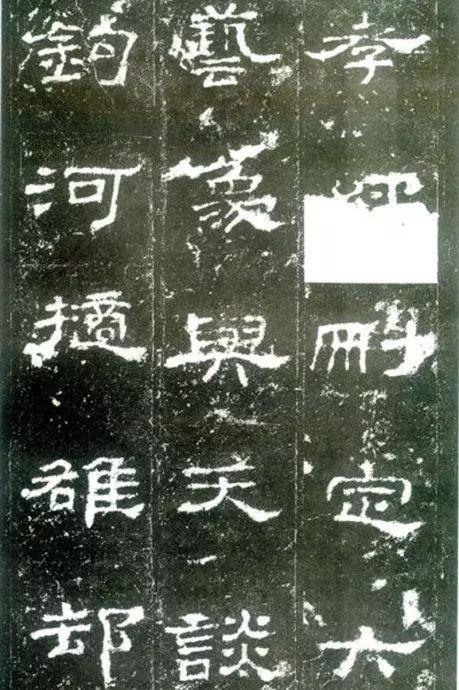 孝刪定六
藝象與天談
鉤河擿雒却